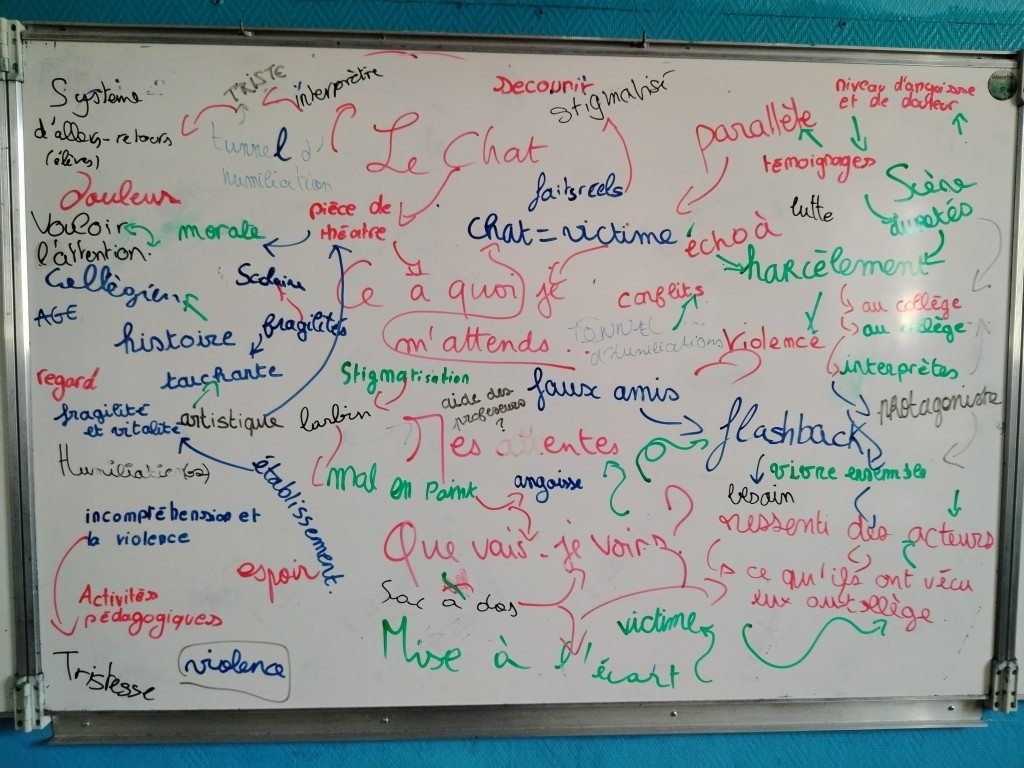 Système
d'allers-retours
(élèves)
TRISTE
interprètre
tunnel d'
humiliation
Le Chat
Decouvrir
stigmatisé
parallète
niveau d'angoisse
et de douleur
témoignages
Scène
duretés
douleur
Vouloir
l'attention.
morale
pièce de
théatre
faits réels
chat = victime
écho à
lutte
harcèlement
Collègien
AGE
Scolaire
Ce à quoi je
m'attends...
conflits
au collège
au collège
histoire
fragilités
TUNNEL
d'humiliations
violence
interprètes
regard
touchante
Stigmatisation
faux amis
protagoniste
fragilité
et vitalité
artistique
larbin
aide des
professeurs
?
flashback
Mes attentes
Humiliation(s)
établissement.
mal en point
angoisse
vivre ensemble
besoin
incompréhension et
la violence
Que vais-je voir?
ressenti des acteurs
espoir
ce qu'ils ont vécu
eux au collège
Activités
pédagogiques
Sac à dos
victime
Mise à l'écart
Tristesse
violence